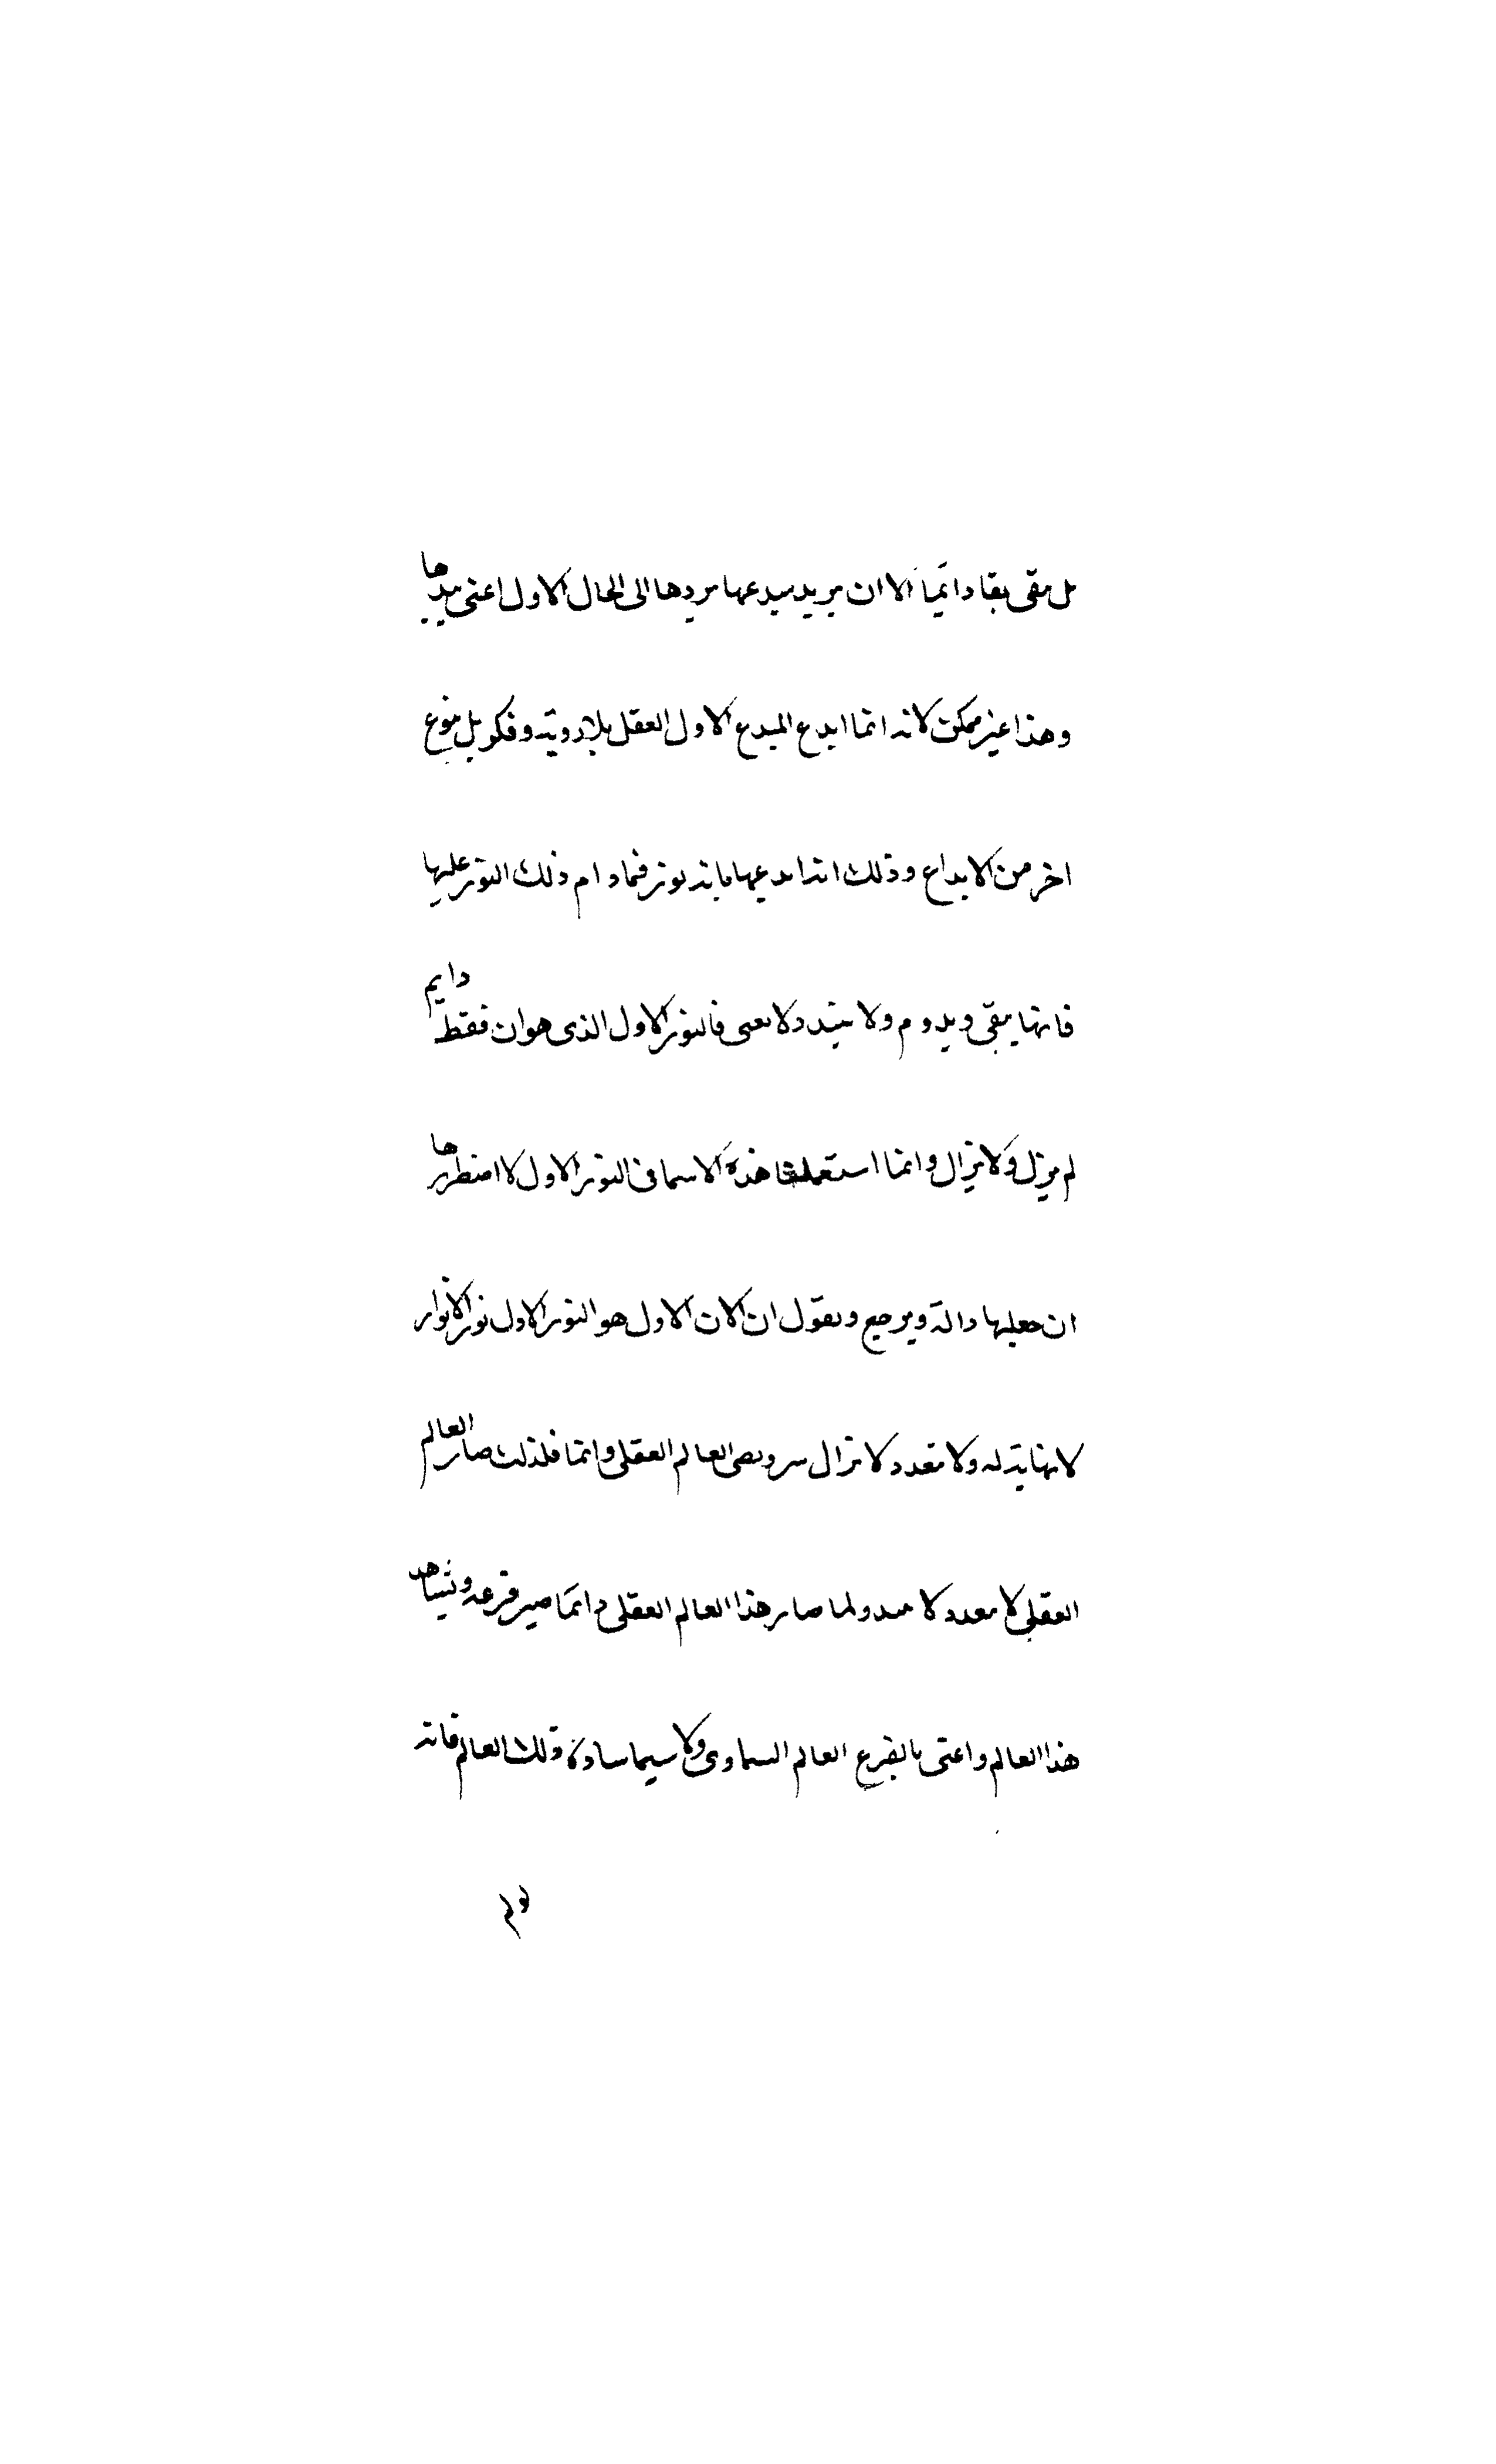 بل بقى بقا دائما الا ان يريد مبدعها يردها الى الحال الاول اعنى يبيدها
وهذا غير ممكن لانه انما ابدع المبدع الاول العقل بلا روية وفكر بل بنوع
اخر من الابداع وذلك انه ابدعها بانه نور فما دام ذلك النور عليها
فانها يبقى ويدوم ولا يبيد ولا يفنى فالنور الاول الذى هو ان فقط دايم
لم يزل ولا يزال وانما استعملنا هذه الاسما فى النور الاول لاضطررنا
ان جعلها دالة ويرجع ونقول ان الان الاول هو النور الاول نور الانوار
لا نهاية له ولا ينفد ولا يزال ينير ويضى العالم العقلى دائما فلذلك صار العالم
العقلى لا ينفد ولا يبيد ولما صار هذا العالم العقلى دائما صير فرعه
هذا العالم واعنى بالفرع العالم السماوى ولا سيما سادة ذلك العالم فانه
لو لم